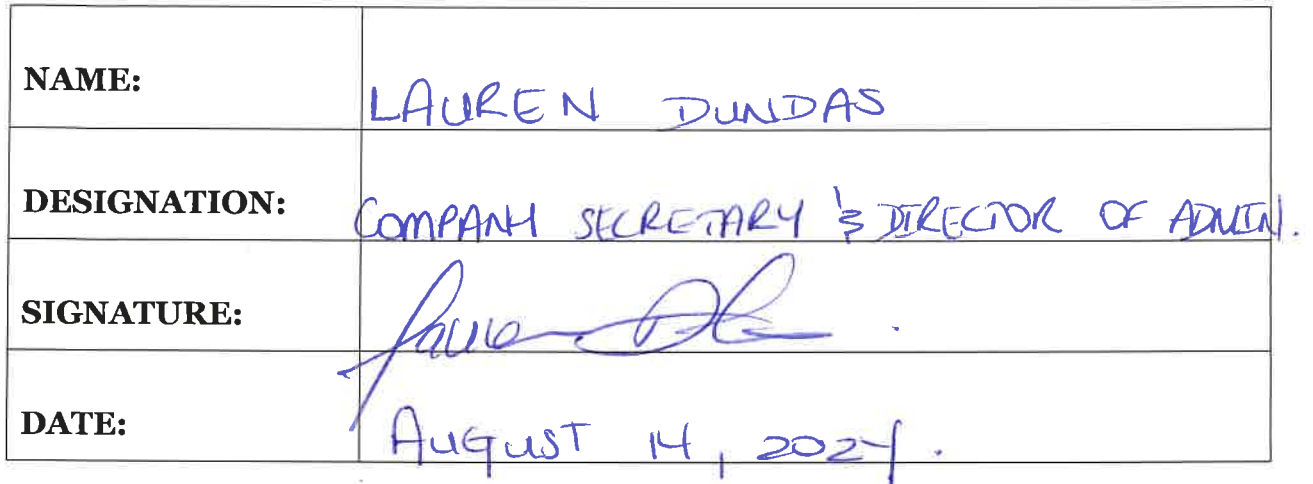 NAME: LAUREN DUNDAS
DESIGNATION: COMPANY SECRETARY & DIRECTOR OF ADMIN.
SIGNATURE:
DATE: AUGUST 14, 2024.